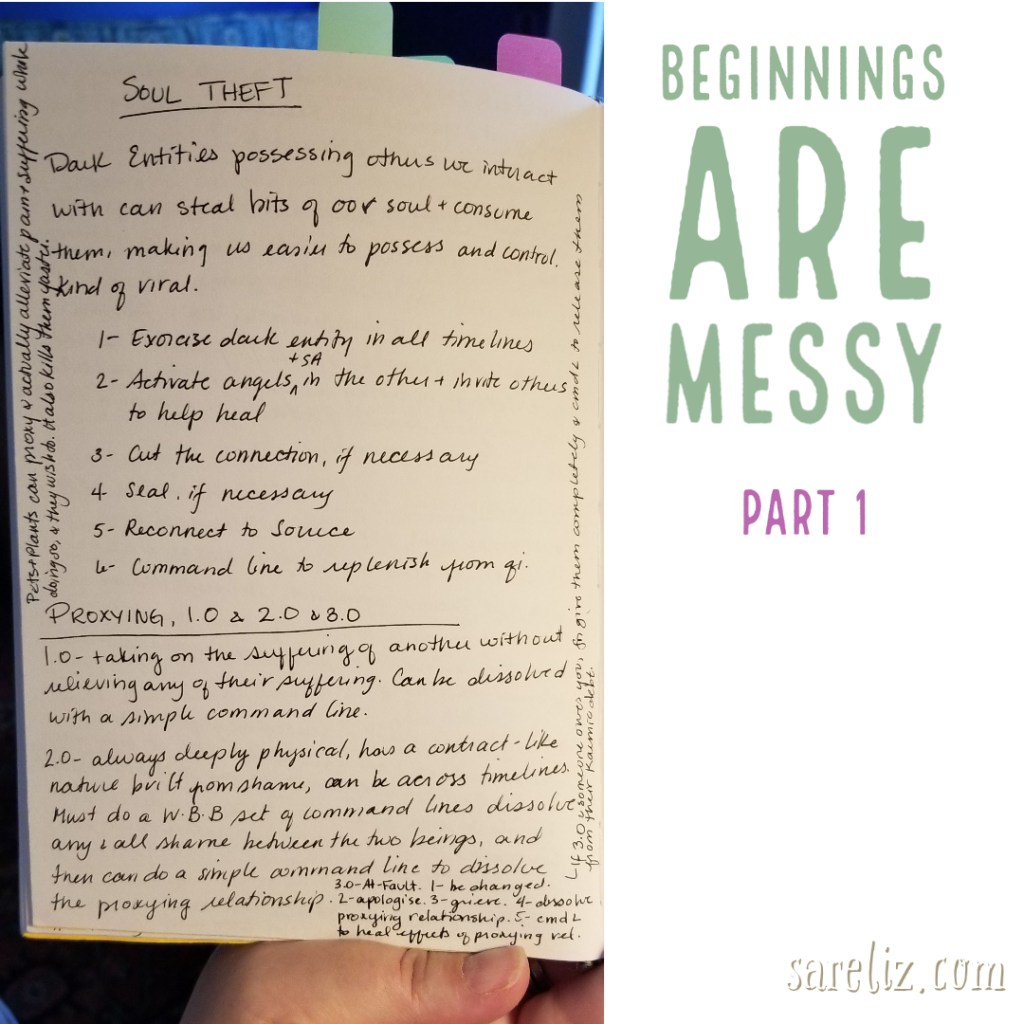 SOUL THEFT
Dark Entities possessing others we interact
with can steal bits of our soul + consume
them, making us easier to possess and control.
Kind of viral.
1- Exorcise dark entity in all timelines
+ SA
2- Activate angels ^ in the other + invite others
to help heal
3- Cut the connection, if necessary
4- Seal. if necessary
5- Reconnect to Source
6- Command line to replenish from qi.
PROXYING, 1.0 & 2.0 & 3.0
1.0- taking on the suffering of another without
relieving any of their suffering. Can be dissolved
with a simple command line.
2.0- always deeply physical, has a contract-like
nature built from shame, can be across timelines.
Must do a W.B.B set of command lines dissolve
any & all shame between the two beings, and
then can do a simple command line to dissolve
the proxying relationship.
3.0-At-Fault. 1- be changed.
2-apologise. 3-grieve. 4-dissolve
proxying relationship. 5- cmd L
to heal effects of proxying rel.
Pets + Plants can proxy & actually alleviate pain + suffering while
doing so, & they wish to. It also kills them faster.
If 3.0 & someone owes you, forgive them completely & cmd L to release them
from their Karmic debt.
BEGINNINGS
ARE
MESSY
PART 1
sareliz.com